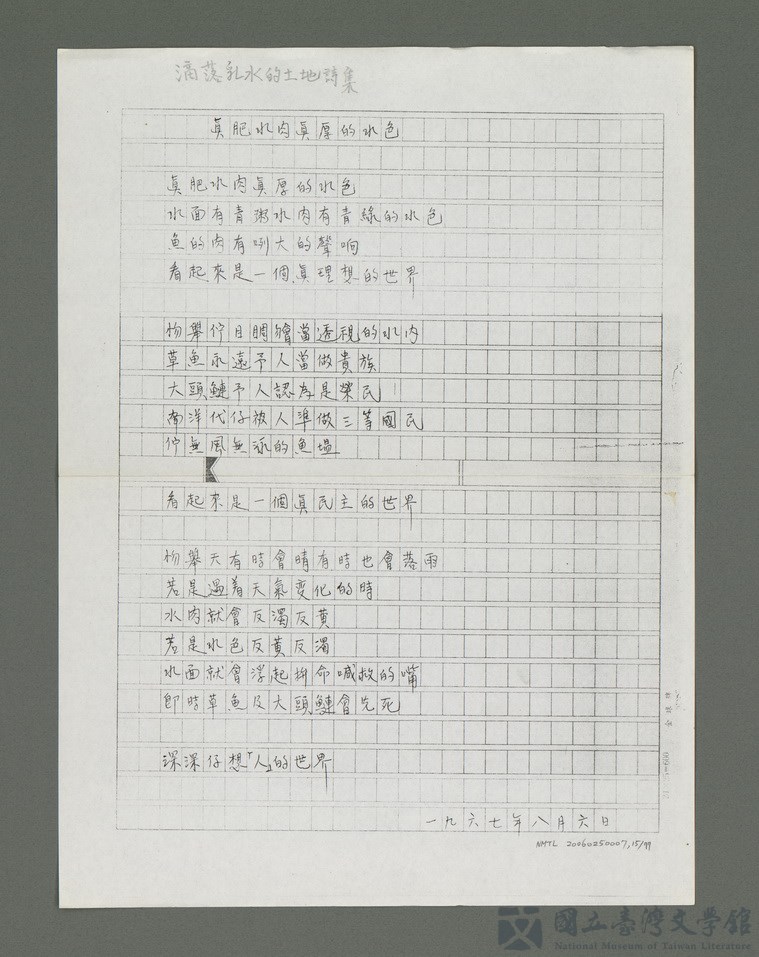 滴落乳水的土地詩集
真肥水肉真厚的水色
真肥水肉真厚的水色
水面有青粥水肉有青綠的水色
魚的肉有咧大的聲响
看起來是一個真理想的世界
物舉佇目睭會當透視的水内
草魚永遠予人當做貴族
大頭鰱予人認為是榮民
南洋代仔被人準做三等國民
佇無風無泳的魚塭
看起來是一個真民主的世界
物舉天有時會晴有時也會落雨
若是遇着天氣变化的時
水肉就會反濁反黃
若是水色反黃反濁
水面就會浮起拚命喊救的嘴
即時草魚及大頭鰱會先死
深深仔想「人」的世界
一九六七年八月六日
NMTL 20060250007,15/99
國立臺灣文學館
National Museum of Taiwan Literature